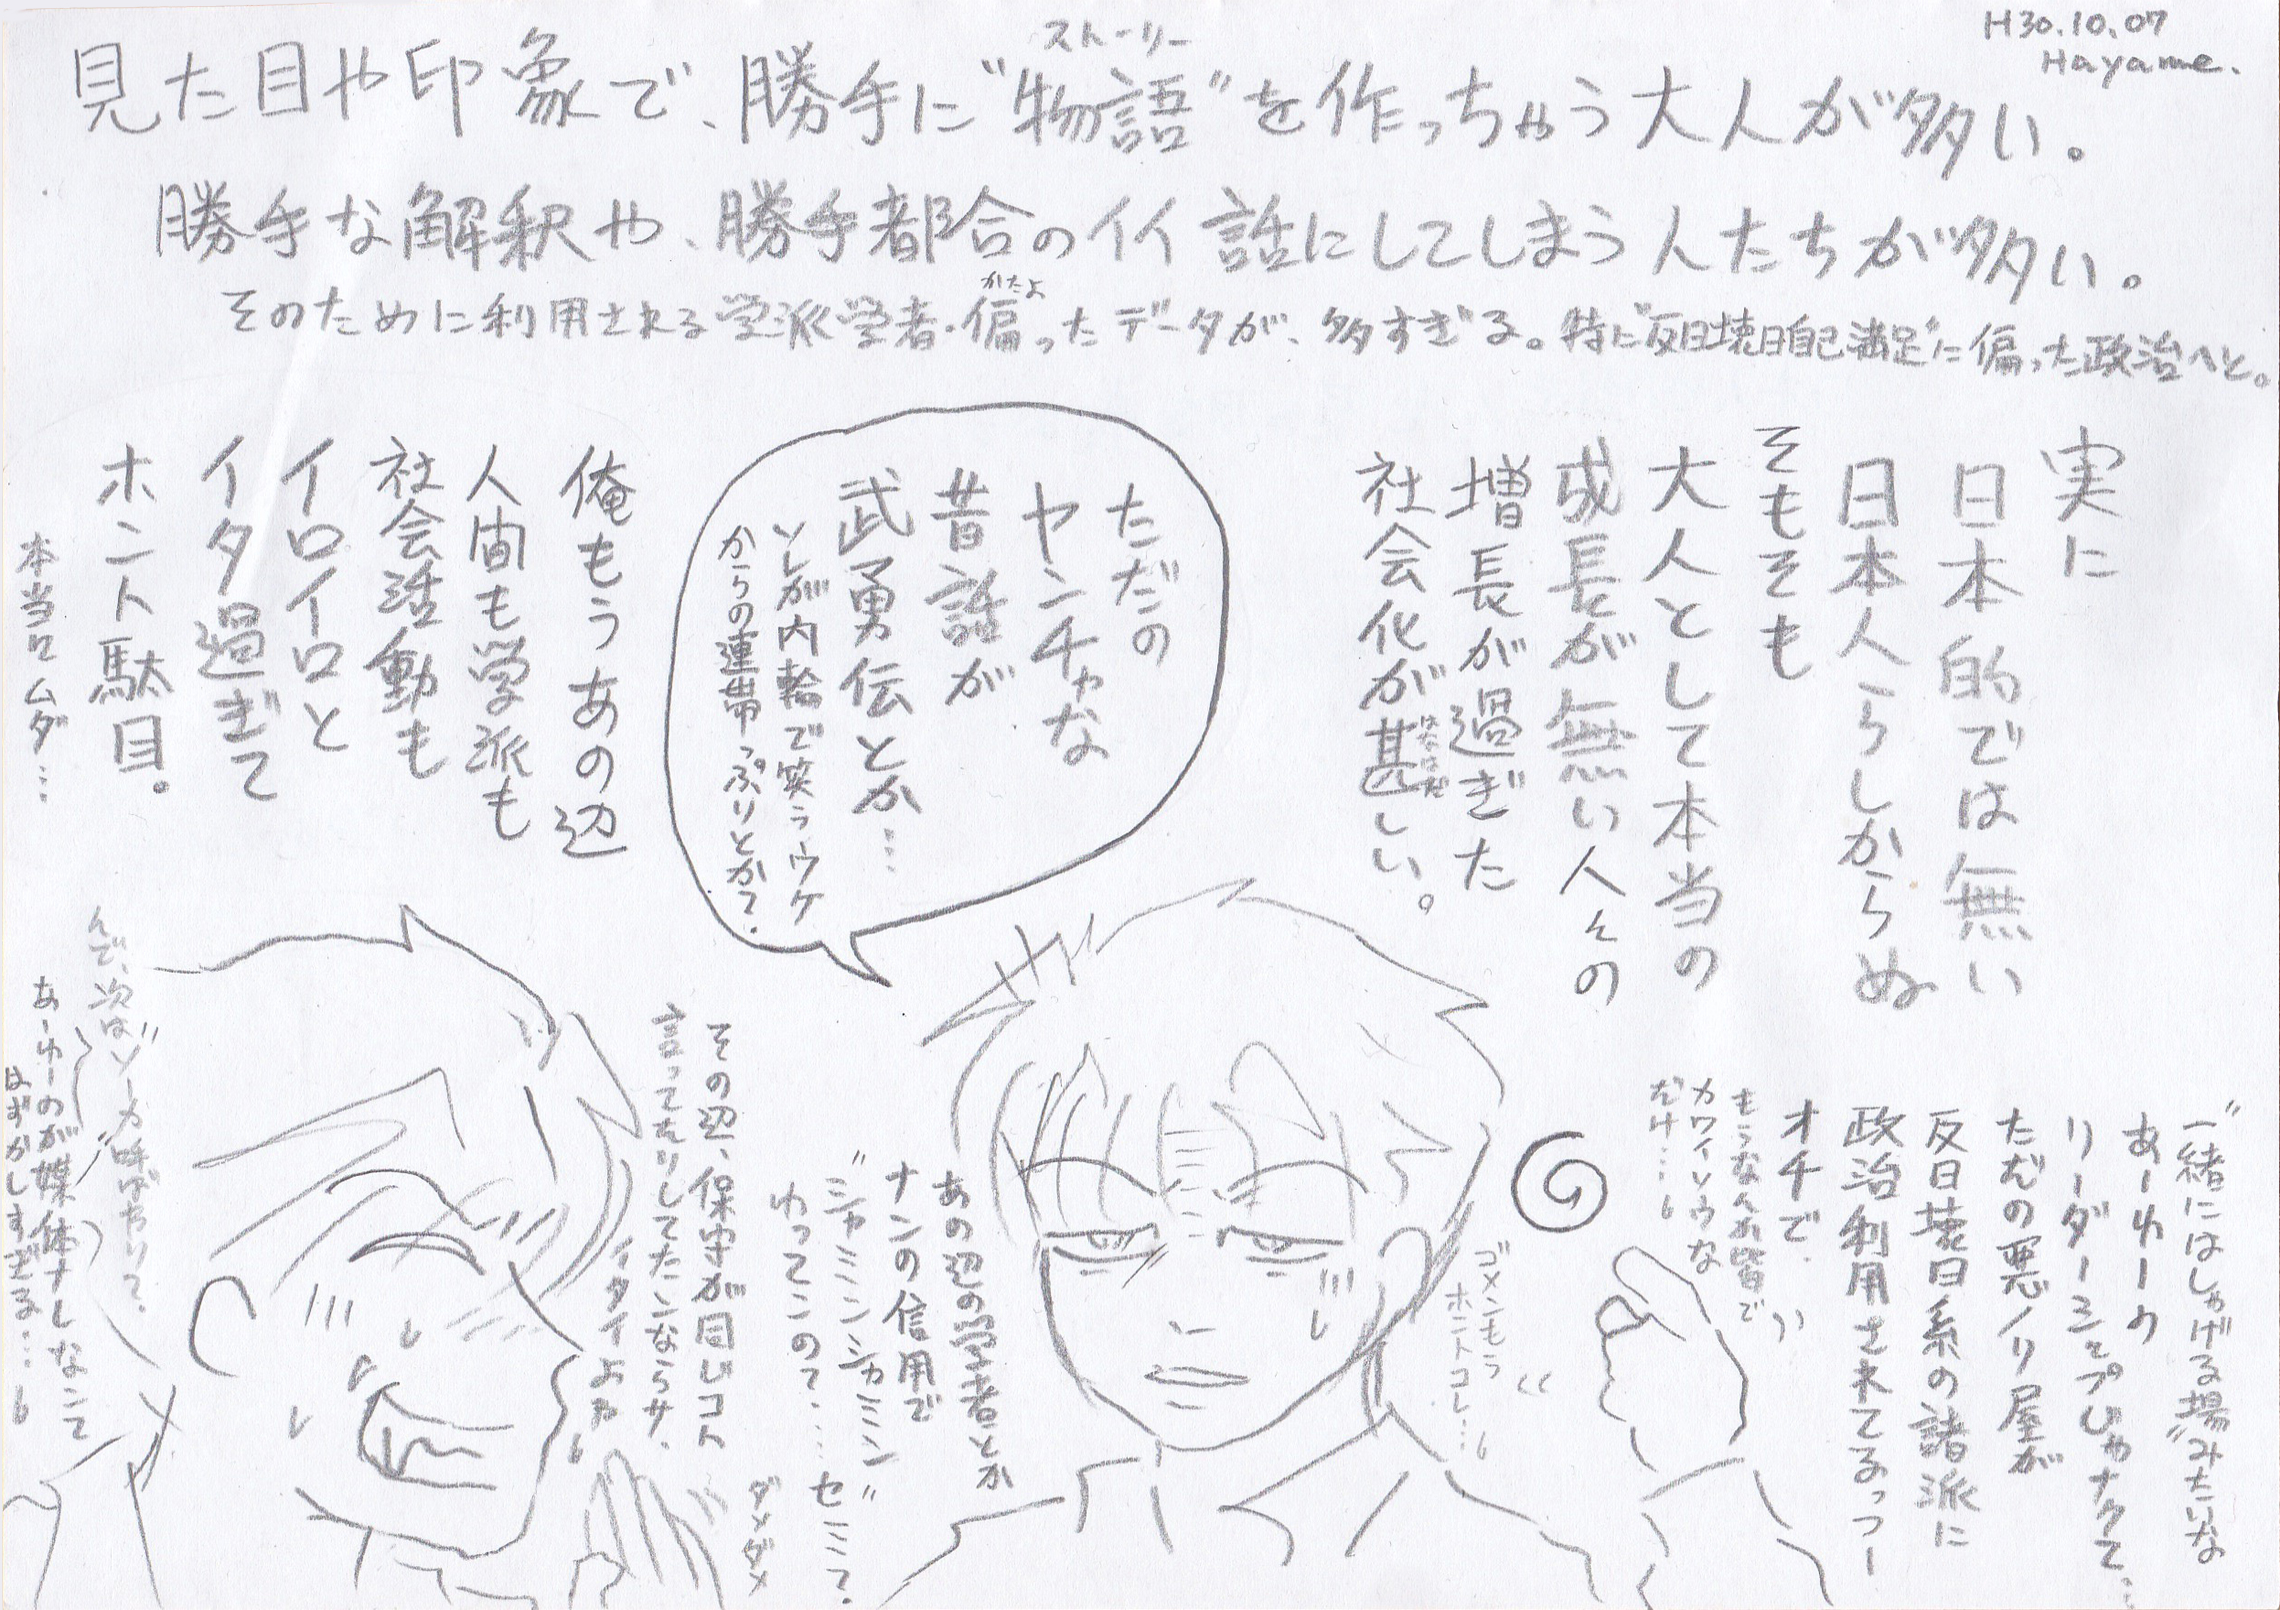 H30.10.07
Hayame.
見た目や印象で、勝手に“物語”を作っちゃう大人が多い。
ストーリー
勝手な解釈や、勝手都合のイイ話にしてしまう人たちが多い。
そのために利用される学派学者・偏ったデータが、多すぎる。特に“反日壊日自己満足”に偏った政治へと。
かたよ
実に
日本的では無い
日本人らしからぬ
そもそも
大人として本当の
成長が無い人々の
増長が過ぎた
社会化が甚しい。
ただの
ヤンチャな
昔話が
武勇伝とか…
ソレが内輪で笑うウケ
からの連帯っぷりとかて.
俺もうあの辺
人間も学派も
社会活動も
イロイロと
イタ過ぎて
ホント駄目。
本当ロムダ…
“一緒にはしゃげる場”みたいな
あーゆーの
リーダーシップじゃナクて…
ただの悪ノリ屋が
反日壊日系の諸派に
政治利用されてるっつー
オチで.
もうなんか皆で
カワイソウな
だけ…
ゴメンもう
ホントコレ…
あの辺の学者とか
ナンの信用で
“シカミンシカミン”
ゆってこのて…セミて.
その辺、保守が同じコト
言ってたりしてたンならサ、
イタイよね
ダメダメ
んで、次は“ソーカ呼ばわりて.
あーゆーのが媒体ナしなて
はずかしすぎる…